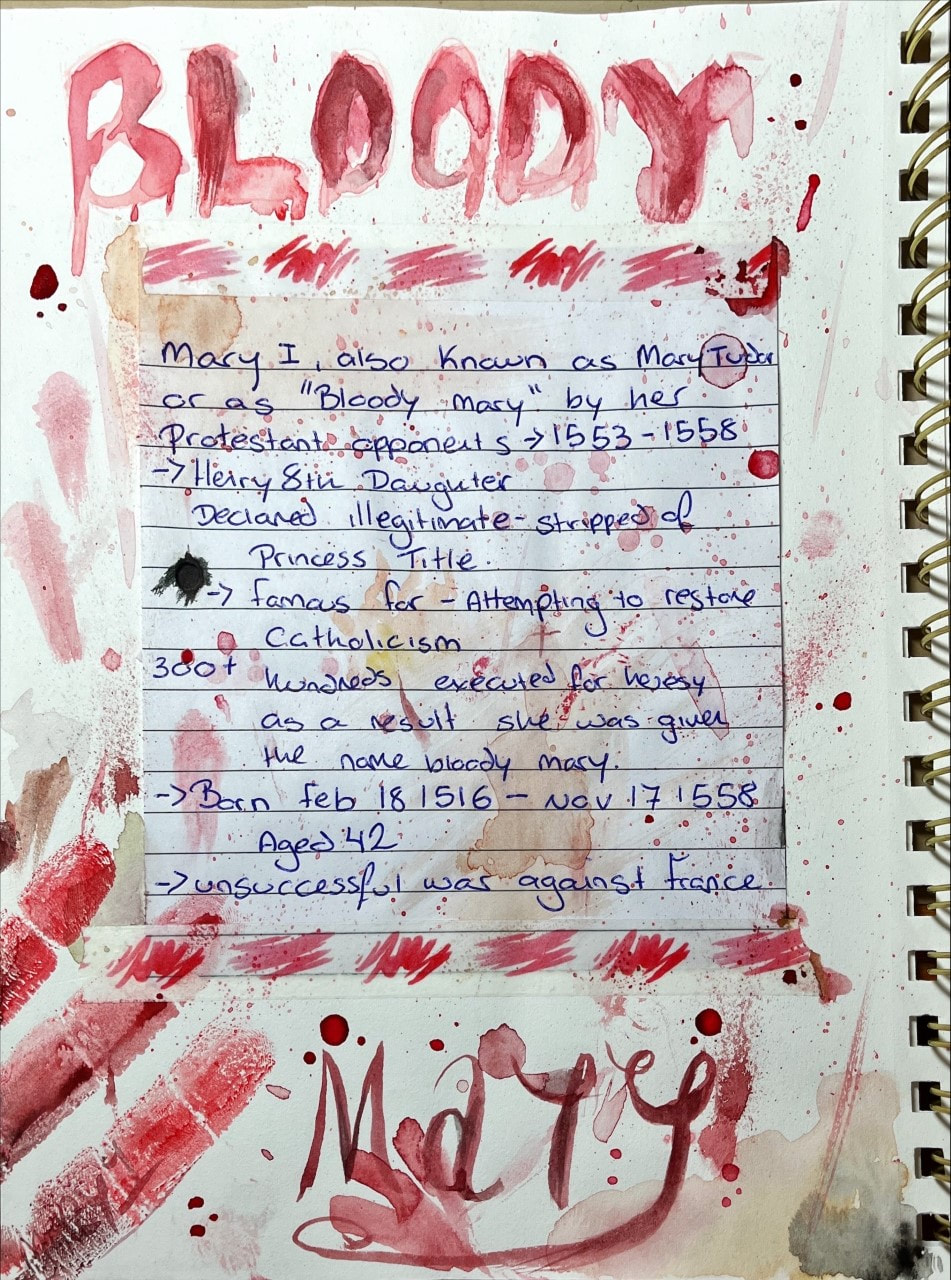 BLOODY
Mary I, also known as Mary Tudor
or as "Bloody Mary" by her
Protestant opponents → 1553 - 1558
→ Henry 8th Daughter
Declared illegitimate - stripped of
Princess Title.
→ famous for - Attempting to restore
Catholicism
300+ hundreds executed for heresy
as a result she was given
the name bloody mary.
→ Born feb 18 1516 - Nov 17 1558
Aged 42
→ unsuccessful was against France.
Mary